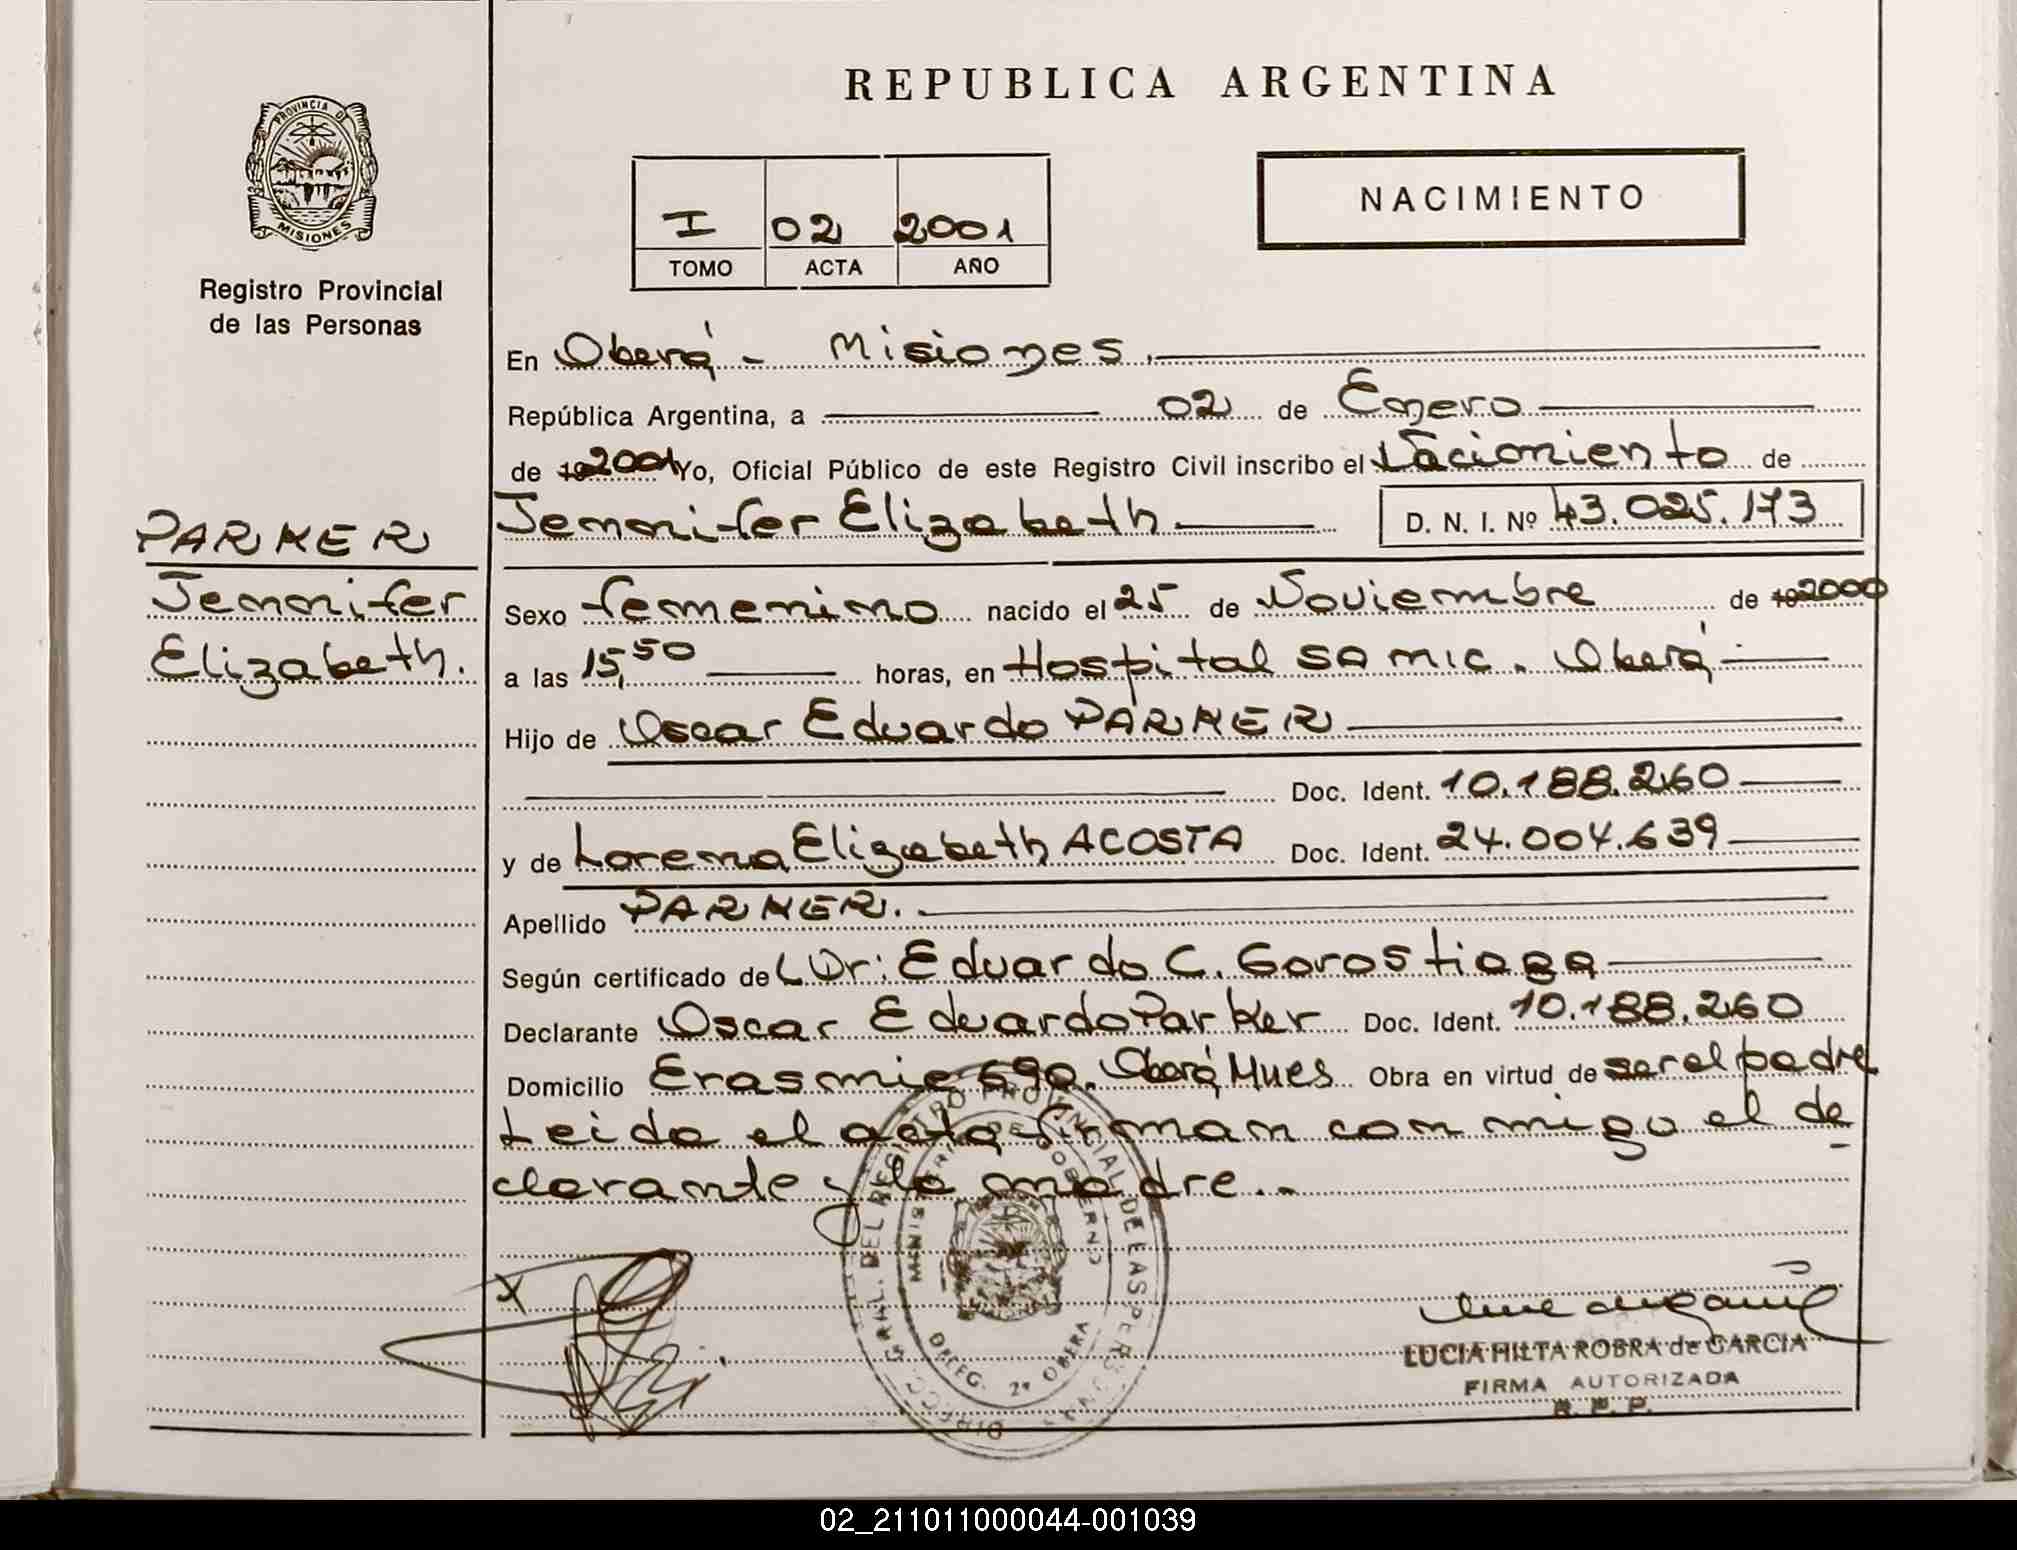 REPUBLICA ARGENTINA
PROVINCIA DE
MISIONES
Registro Provincial
de las Personas
I 02 2001
TOMO ACTA AÑO
NACIMIENTO
En Oberá - Misiones.
República Argentina, a 02 de Enero
de 19 2001 Yo, Oficial Público de este Registro Civil inscribo el Nacimiento de
PARKER
Jennifer Elizabeth D. N. I. Nº 43.025.173
Jennifer
Elizabeth.
Sexo femenino nacido el 25 de Noviembre de 19 2000
a las 15,50 horas, en Hospital SAMIC. Oberá
Hijo de Oscar Eduardo PARKER
Doc. Ident. 10.188.260
y de Lorena Elizabeth ACOSTA Doc. Ident. 24.004.639
Apellido PARKER.
Según certificado de Dr: Eduardo C. Gorostiaga
Declarante Oscar Eduardo Parker Doc. Ident. 10.188.260
Domicilio 690. Oberá Mnes Obra en virtud de ser el padre
Leida el acta firman con migo el de
clarante y la madre.-
DIRECC. GRAL. DEL REGISTRO PROVINCIAL DE LAS PERSONAS
MINISTERIO DE GOBIERNO
DELEG. 2ª OBERA
X
LUCIA HILTA ROBRA de GARCIA
FIRMA AUTORIZADA
R. P. P.
02_211011000044-001039